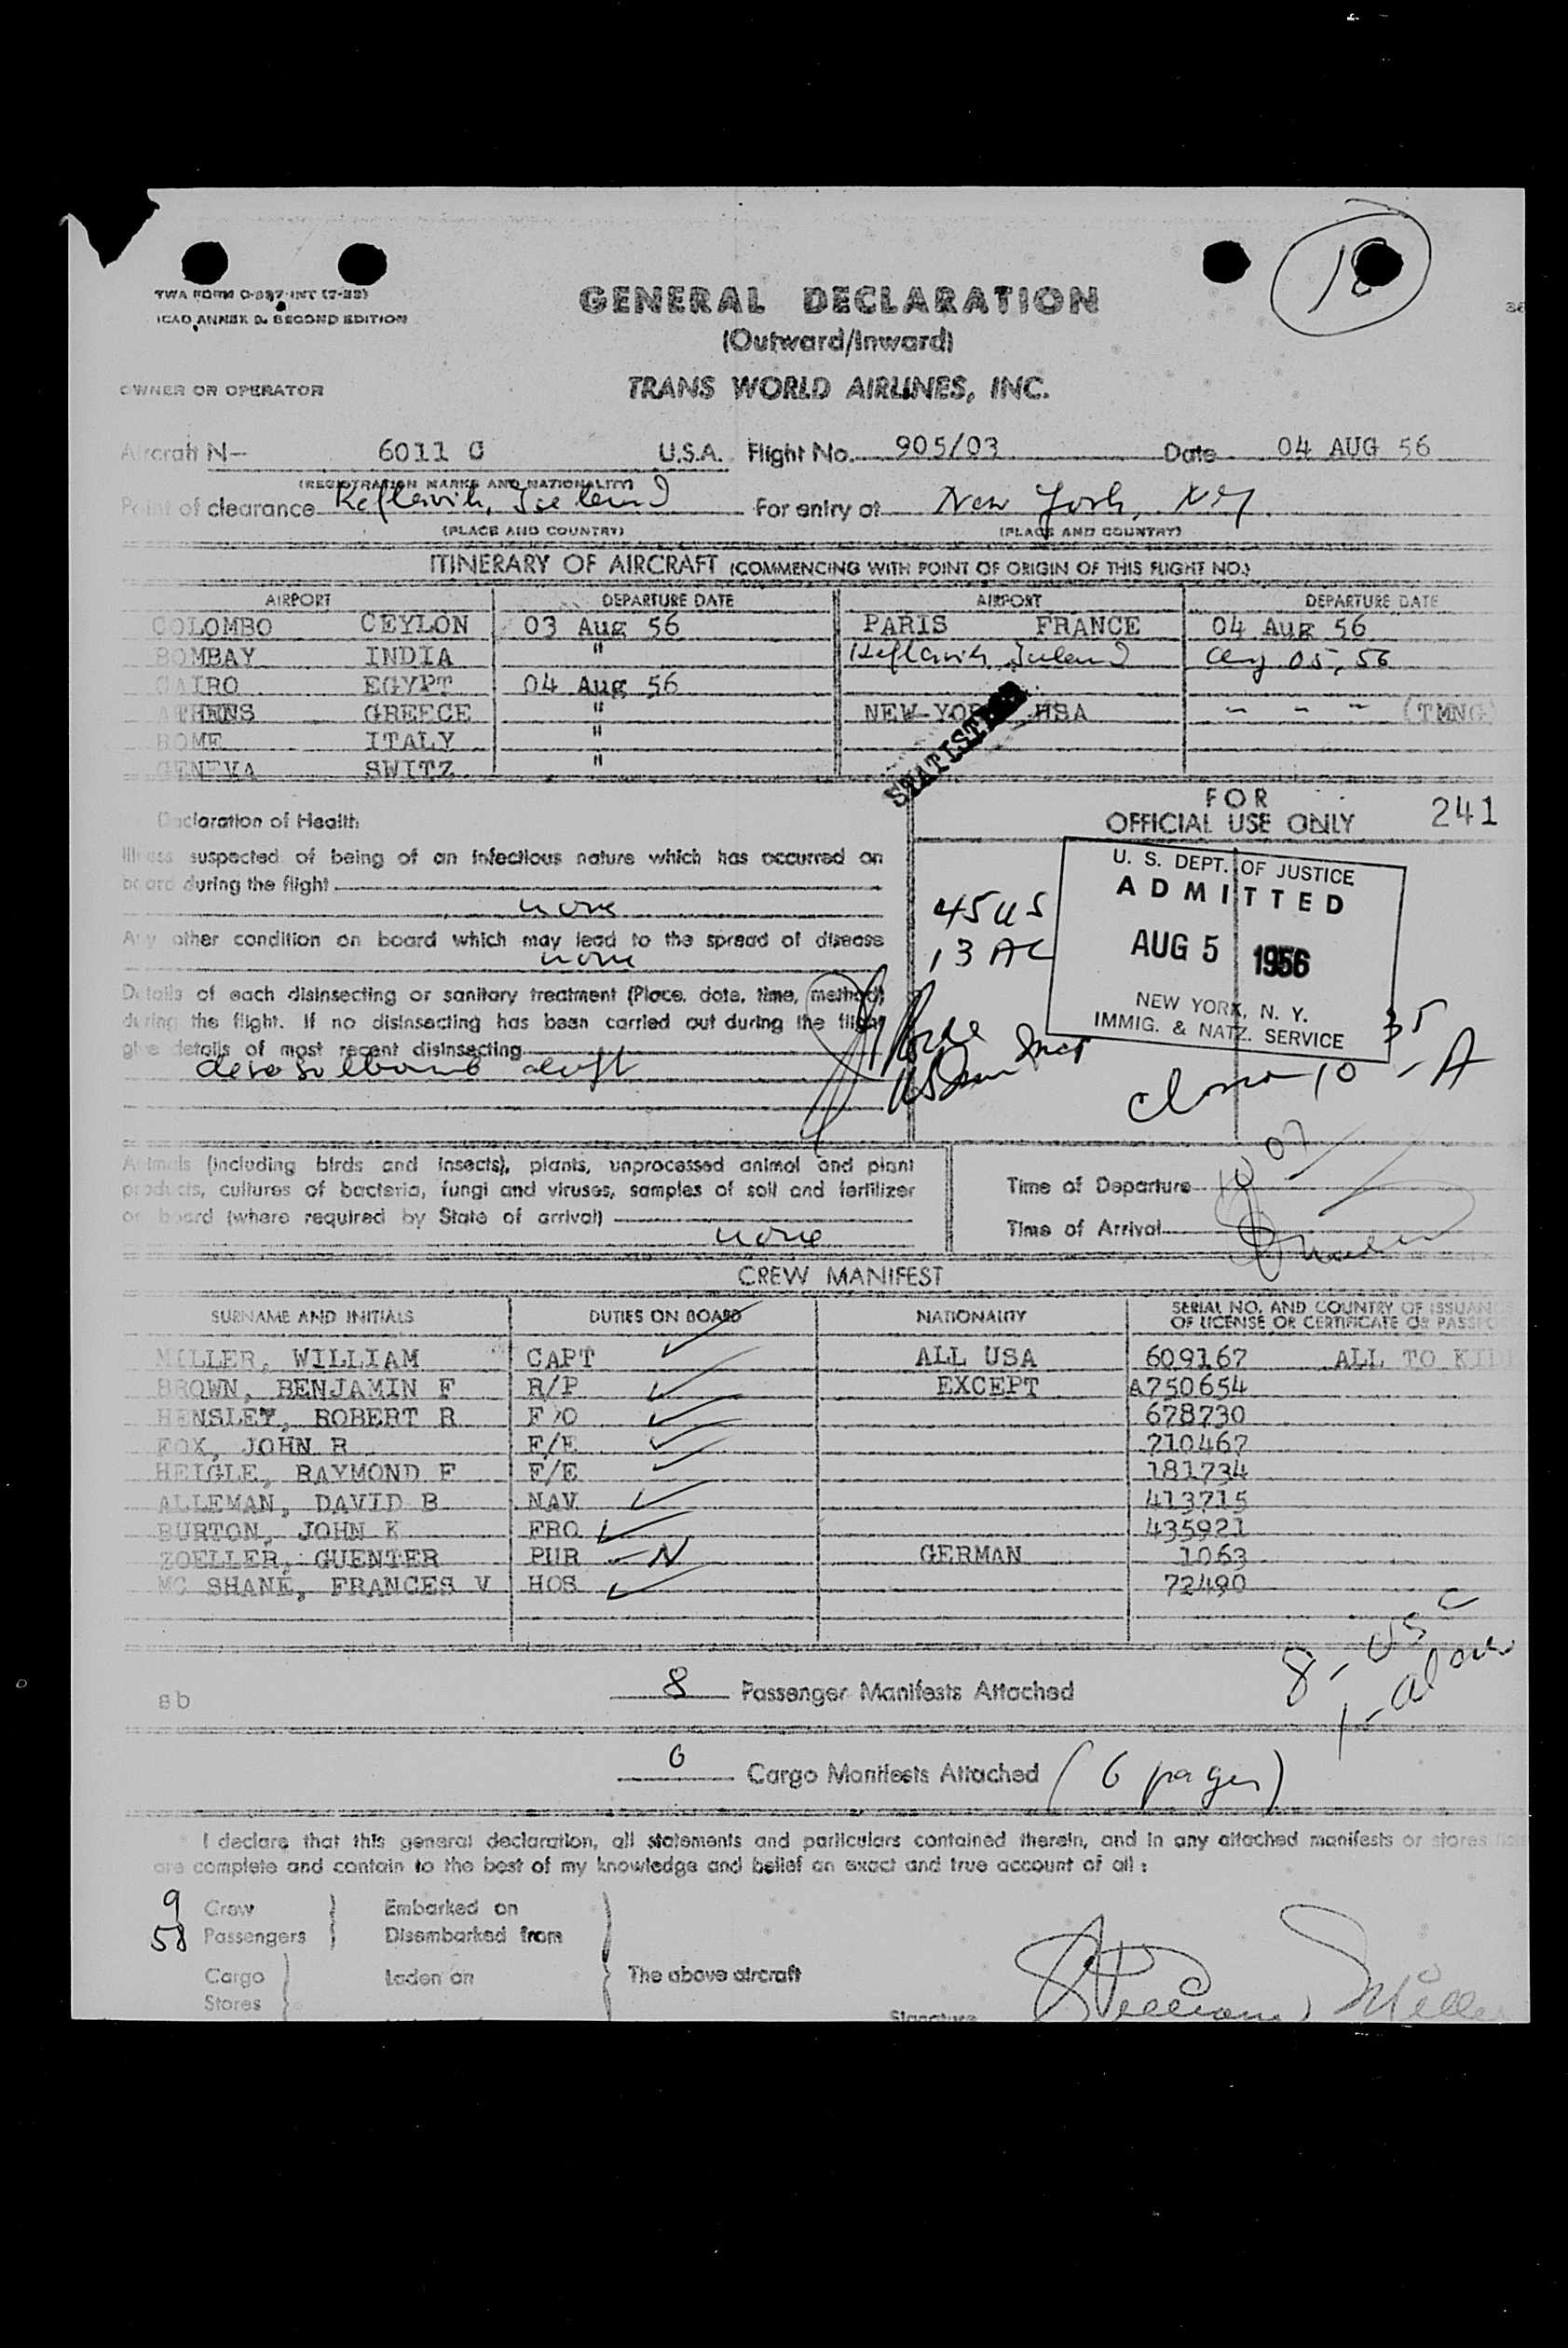 18
TWA FORM O-887-INT (7-55)
ICAO ANNEX 9, SECOND EDITION
GENERAL DECLARATION
(Outward/Inward)
OWNER OR OPERATOR
TRANS WORLD AIRLINES, INC.
Aircraft N- 6011 C U.S.A. Flight No. 905/03 Date 04 AUG 56
(REGISTRATION MARKS AND NATIONALITY)
Point of clearance Keflavik, Iceland For entry at New York, NY.
(PLACE AND COUNTRY) (PLACE AND COUNTRY)
ITINERARY OF AIRCRAFT (COMMENCING WITH POINT OF ORIGIN OF THIS FLIGHT NO.)
AIRPORT DEPARTURE DATE AIRPORT DEPARTURE DATE
COLOMBO CEYLON 03 Aug 56 PARIS FRANCE 04 Aug 56
BOMBAY INDIA " Keflavik Iceland Aug 05, 56
CAIRO EGYPT 04 Aug 56
ATHENS GREECE " NEW YORK USA - - - (TMNG)
ROME ITALY "
GENEVA SWITZ "
STATISTICS
FOR
OFFICIAL USE ONLY 241
Declaration of Health
Illness suspected of being of an infectious nature which has occurred on
board during the flight
none
Any other condition on board which may lead to the spread of disease
none
Details of each disinsecting or sanitary treatment (Place, date, time, method)
during the flight. If no disinsecting has been carried out during the flight
give details of most recent disinsecting
45 US
13 AL
U. S. DEPT. OF JUSTICE
ADMITTED
AUG 5 1956
NEW YORK, N. Y.
IMMIG. & NATZ. SERVICE
Insp
10 35 - A
Animals (including birds and insects), plants, unprocessed animal and plant
products, cultures of bacteria, fungi and viruses, samples of soil and fertilizer
on board (where required by State of arrival)
none
Time of Departure
Time of Arrival
CREW MANIFEST
SURNAME AND INITIALS DUTIES ON BOARD NATIONALITY SERIAL NO. AND COUNTRY OF ISSUANCE
OF LICENSE OR CERTIFICATE OR PASSPO
MILLER, WILLIAM CAPT ALL USA 609167 ALL TO KID
BROWN, BENJAMIN F R/P EXCEPT A750654
HENSLEY, ROBERT R F/O 678730
FOX, JOHN R F/E 710467
HEIGLE, RAYMOND F F/E 181734
ALLEMAN, DAVID B NAV 413715
BURTON, JOHN K FRO 435921
ZOELLER, GUENTER PUR N GERMAN 1063
MC SHANE, FRANCES V HOS 72490
8 - USC
1 - alien
sb
8 Passenger Manifests Attached
6 Cargo Manifests Attached (6 pages)
I declare that this general declaration, all statements and particulars contained therein, and in any attached manifests or stores lists
are complete and contain to the best of my knowledge and belief an exact and true account of all:
9 Crew Embarked on
58 Passengers Disembarked from
Cargo Laden on The above aircraft
Stores
Signature William Miller